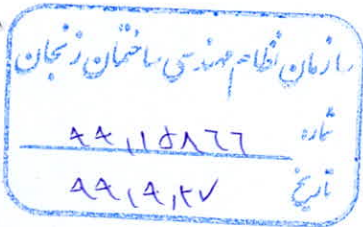 سازمان نظام مهندسی ساختمان زنجان
شماره ۹۹,۱۵۸۶۶
تاریخ ۹۹,۹,۲۷